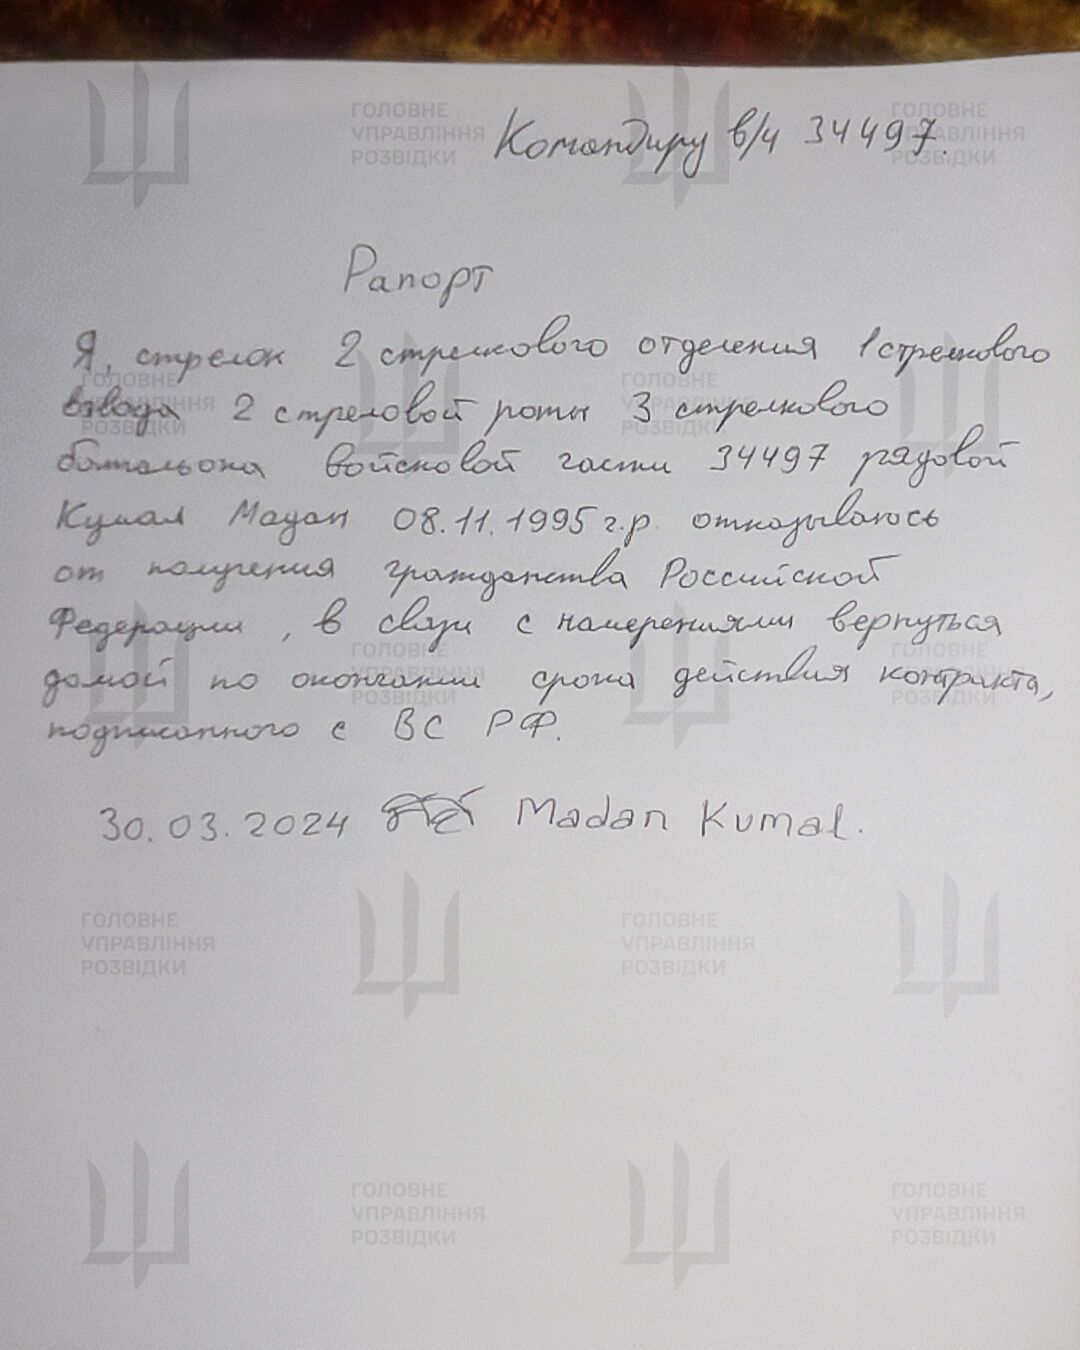 Командиру в/ч 34497.
Рапорт
Я, стрелок 2 стрелкового отделения 1 стрелкового
взвода 2 стреловой роты 3 стрелкового
батальона войсковой части 34497 рядовой
Кумал Мадан 08.11.1995 г.р. отказываюсь
от получения гражданства Российской
Федерации, в связи с намерениями вернуться
домой по окончании срока действия контракта,
подписанного с ВС РФ.
30.03.2024 Madan Kumal.
ГОЛОВНЕ
УПРАВЛІННЯ
РОЗВІДКИ
ГОЛОВНЕ
УПРАВЛІННЯ
РОЗВІДКИ
ГОЛОВНЕ
УПРАВЛІННЯ
РОЗВІДКИ
ГОЛОВНЕ
УПРАВЛІННЯ
РОЗВІДКИ
ГОЛОВНЕ
УПРАВЛІННЯ
РОЗВІДКИ
ГОЛОВНЕ
УПРАВЛІННЯ
РОЗВІДКИ
ГОЛОВНЕ
УПРАВЛІННЯ
РОЗВІДКИ
ГОЛОВНЕ
УПРАВЛІННЯ
РОЗВІДКИ
ГОЛОВНЕ
УПРАВЛІННЯ
РОЗВІДКИ
ГОЛОВНЕ
УПРАВЛІННЯ
РОЗВІДКИ